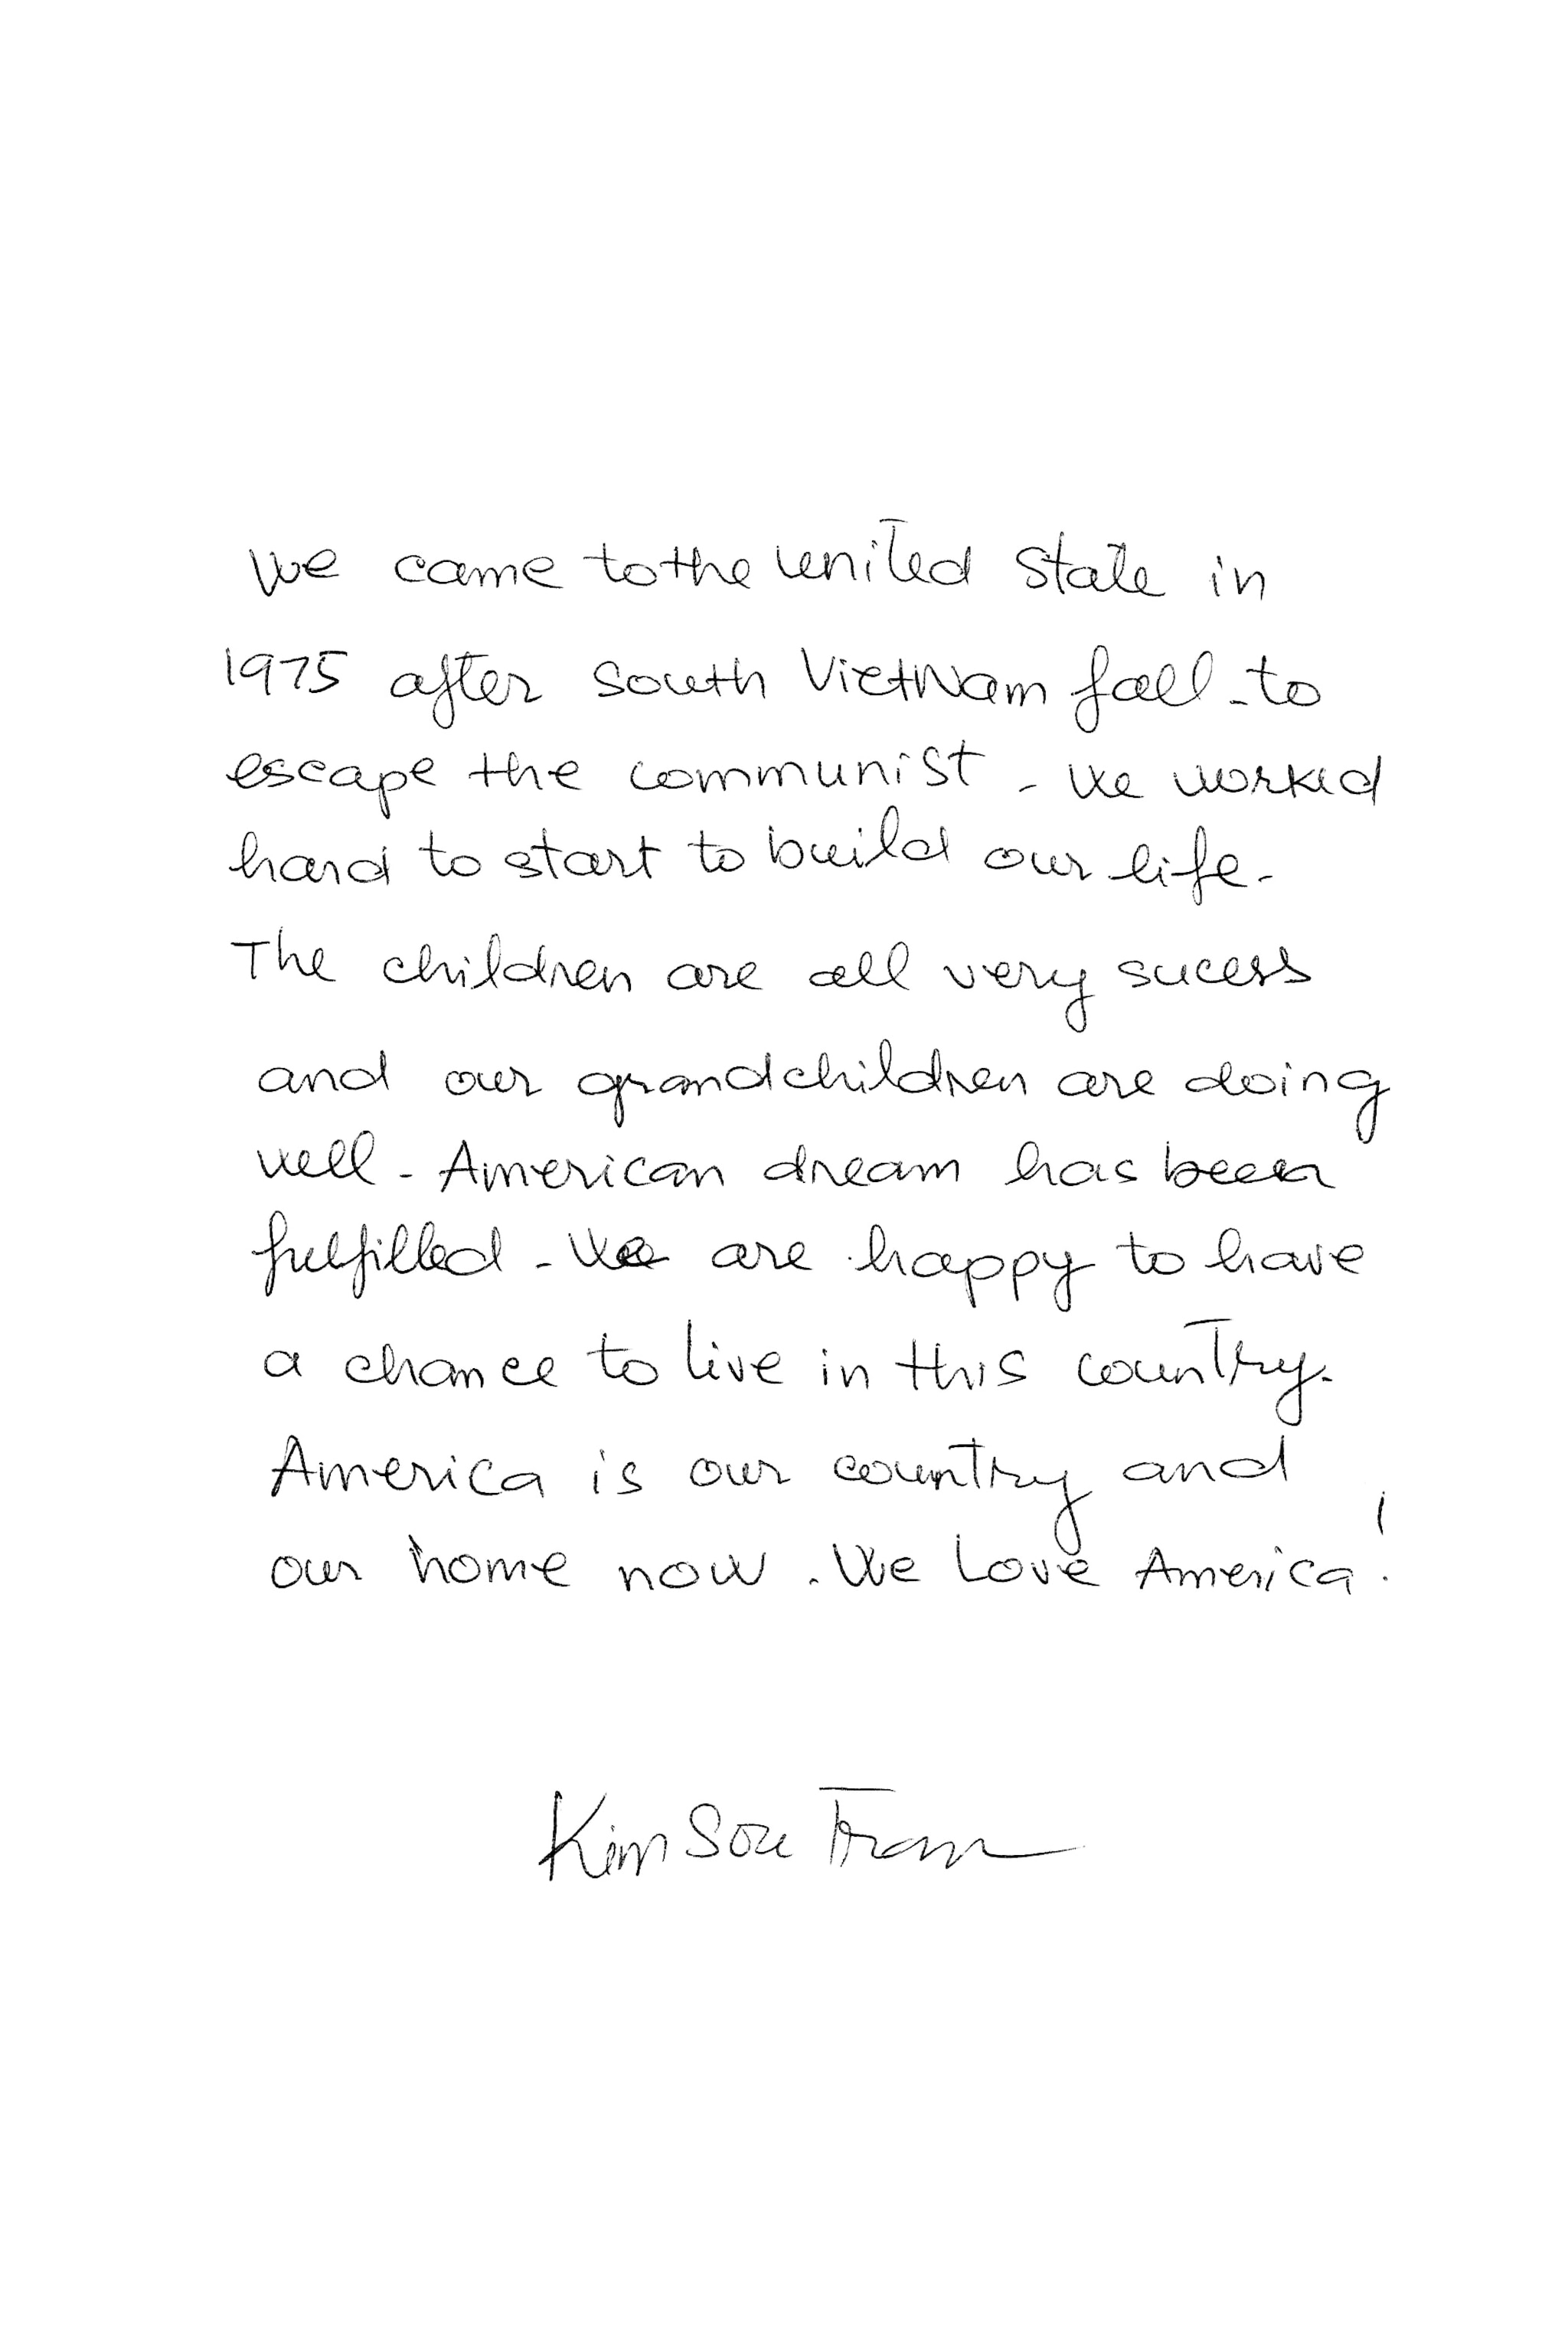 We came to the united state in
1975 after south VietNam fall - to
escape the communist - We worked
hard to start to build our life -
The children are all very sucess
and our grandchildren are doing
well - American dream has been
fulfilled - We are happy to have
a chance to live in this country.
America is our country and
our home now . We Love America !
Kim Tran